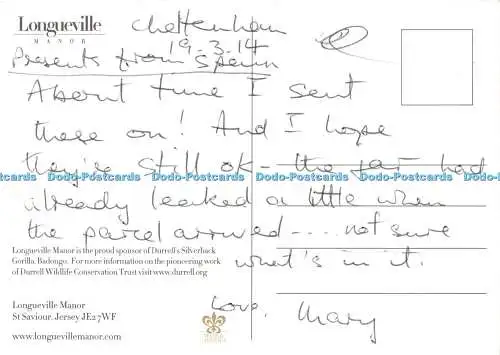 Longueville
MANOR
Cheltenham
19.3.14
Presents from Spain
About time I sent
these on! And I hope
they're still ok - the jar had
Dodo-Postcards Dodo-Postcards Dodo-Postcards Dodo-Postcards Dodo-Postcards
already leaked a little when
the parcel arrived..... not sure
what's in it.
Longueville Manor is the proud sponsor of Durrell's Silverback
Gorilla, Badongo. For more information on the pioneering work
of Durrell Wildlife Conservation Trust visit www.durrell.org
Love, Mary
Longueville Manor
St Saviour, Jersey JE2 7WF
www.longuevillemanor.com